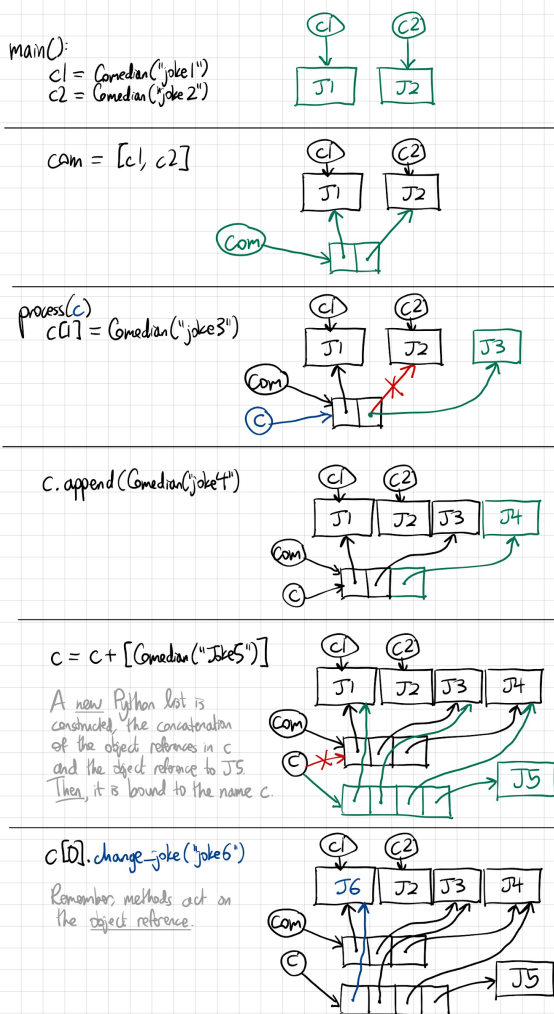 main():
c1 = Comedian("joke1")
c2 = Comedian("joke 2")
c1
c2
J1
J2
com = [c1, c2]
c1
c2
J1
J2
com
process(c)
c[1] = Comedian("joke3")
c1
c2
J1
J2
J3
com
c
c.append(Comedian("joke4")
c1
c2
J1
J2
J3
J4
com
c
c = c + [Comedian("Joke5")]
A new Python list is
constructed, the concatenation
of the object references in c
and the object reference to J5.
Then, it is bound to the name c.
c1
c2
J1
J2
J3
J4
com
c
J5
c[0].change_joke("joke6")
Remember, methods act on
the object reference.
c1
c2
J6
J2
J3
J4
com
c
J5